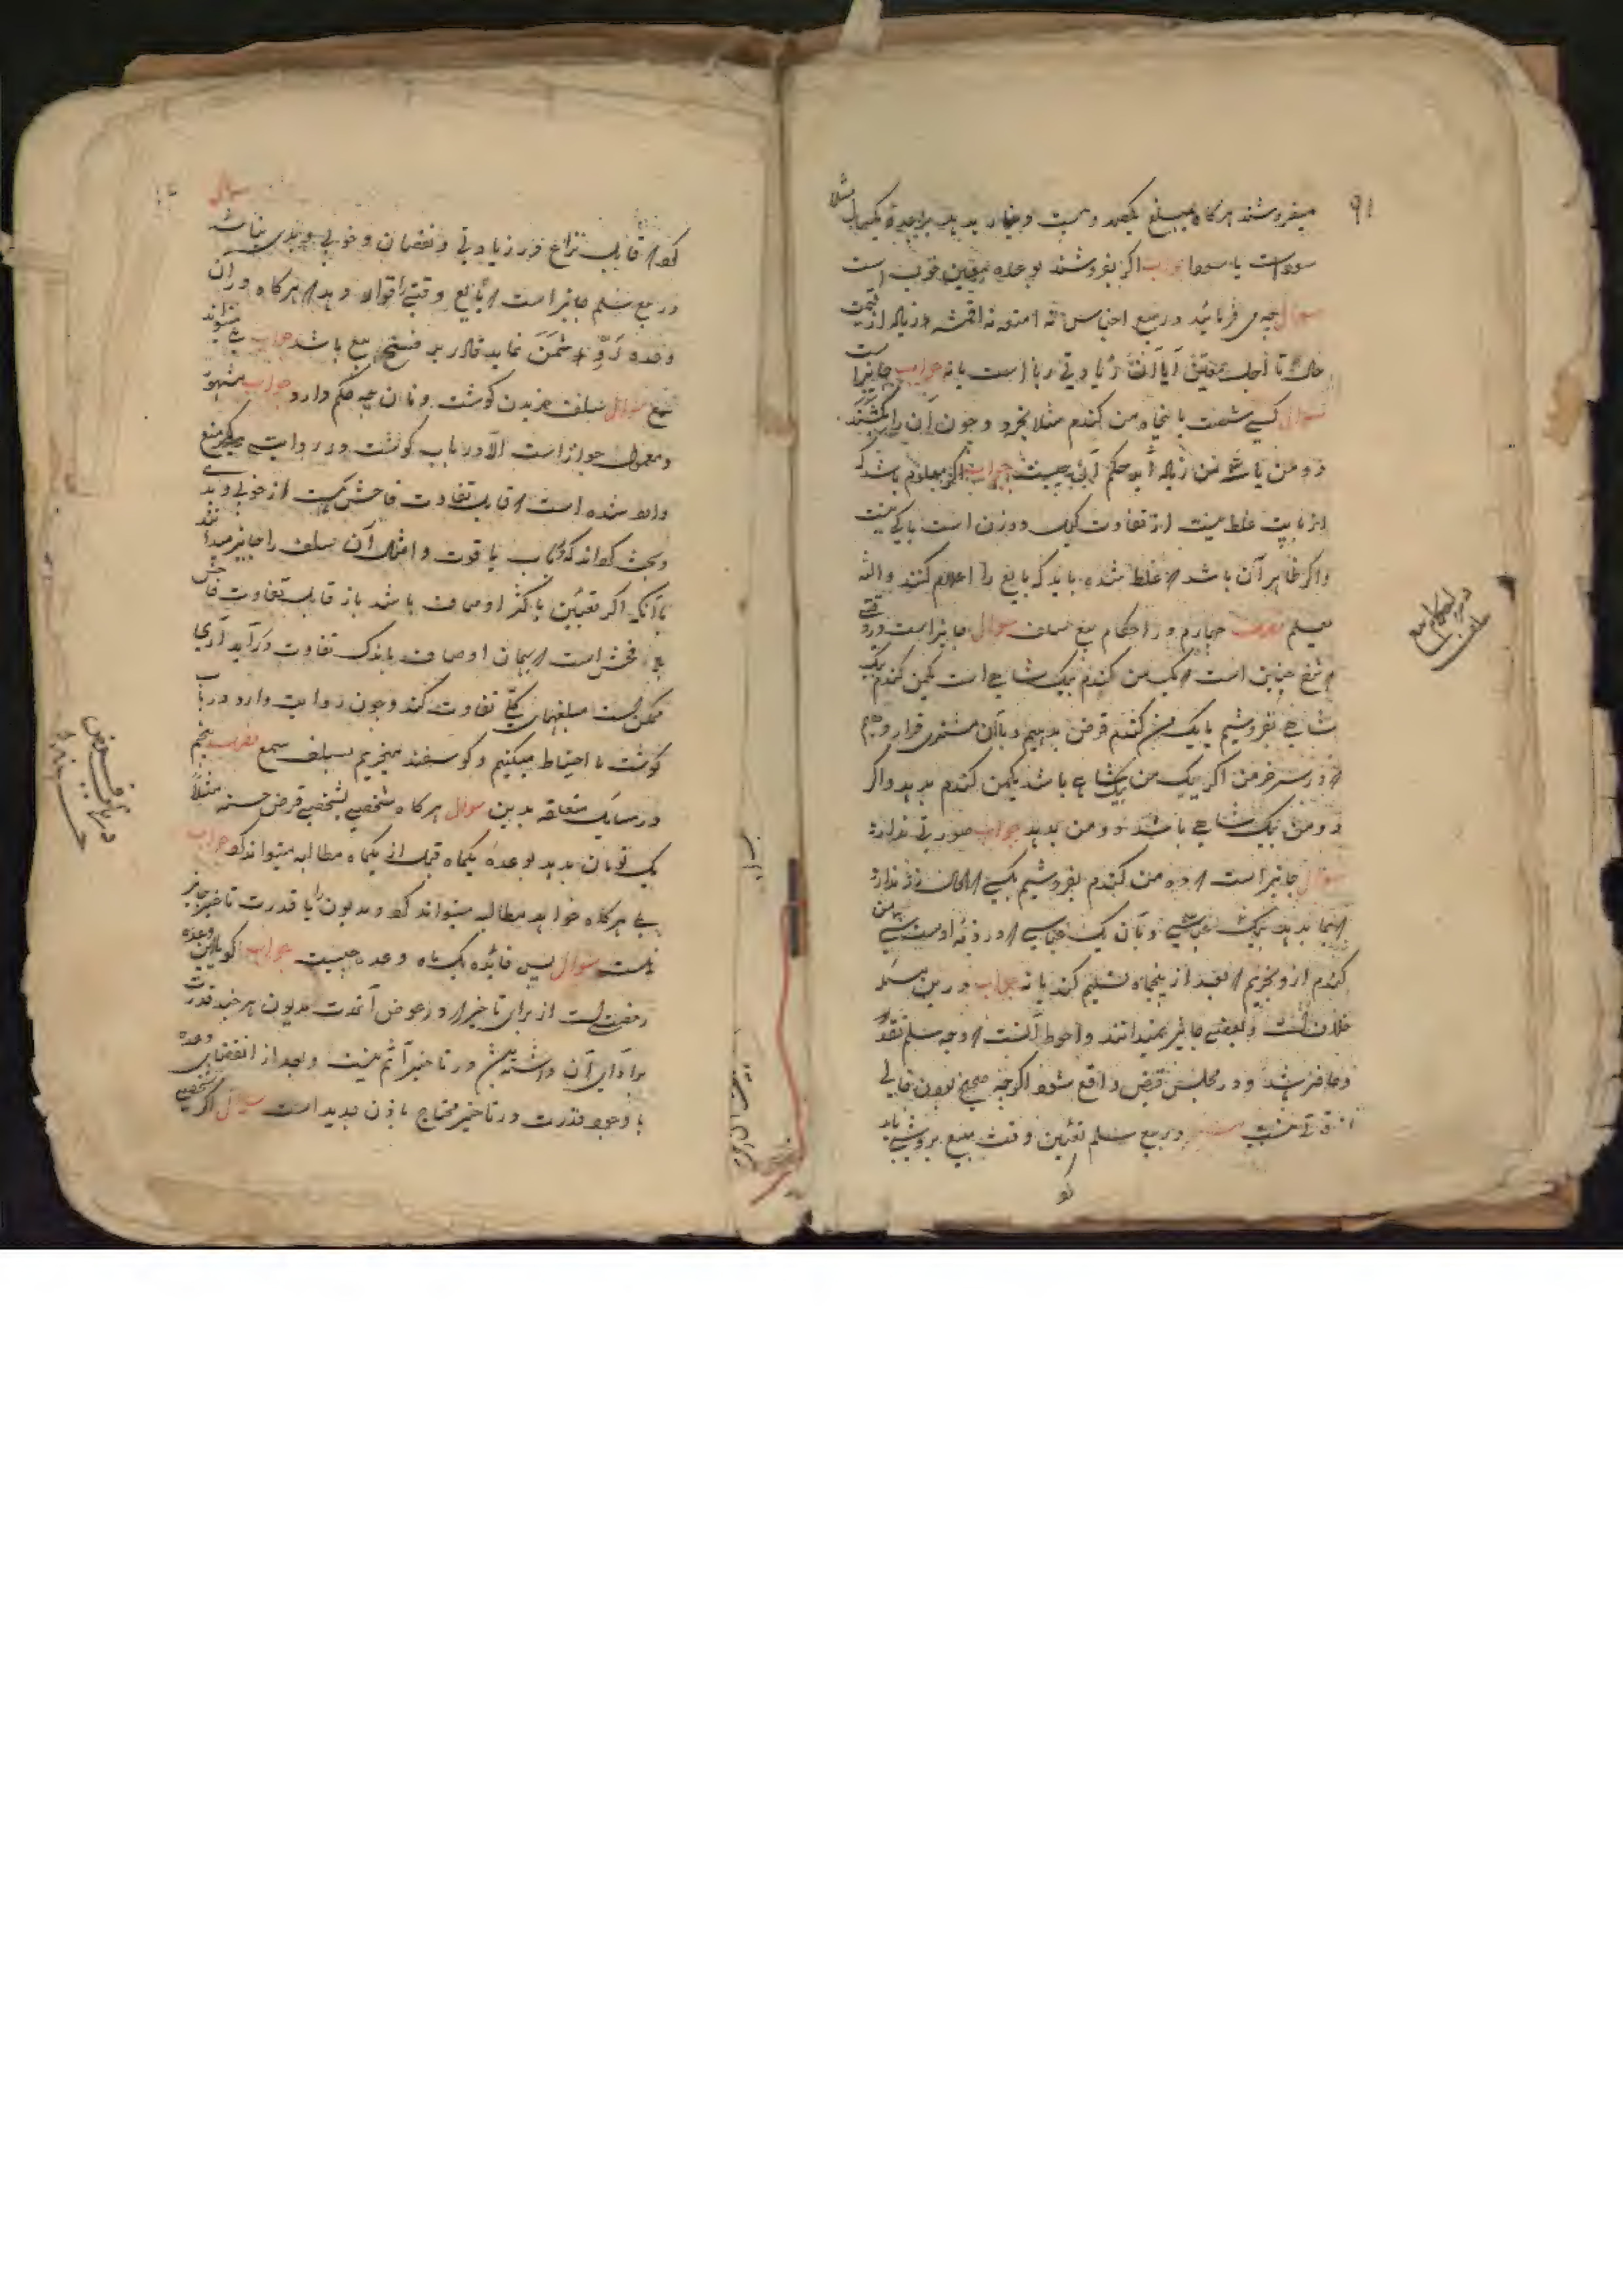 ۹۱
میفروشند هرکاه بمبلغ یکصد و بیست دینار بدهد بوعده یکسال مثلا
سود است یا سودا جواب اکر بفروشند بوعده معین خوب است
سوال چه می فرمائید در بیع اجناس نه امتعه نه اقمشه زیاده از قیمت
حال تا اجل معین آیا آن زیادتی ربا است یا نه جواب جایز است
سوال کسی شصت یا پنجاه من کندم مثلا بخرد و چون آن را کشند
دو من یا سه من زیاد آید حکم آن چیست جواب اکر معلوم باشد که
از بابت غلط نیست از تفاوت کیل و وزن است باکی نیست
واکر ظاهر آن باشد که غلط شده باید که بایع را اعلام کنند والله
یعلم مطلب چهارم در احکام بیع سلف سوال جایز است در وقتی
که نرخ چنین است که یک من کندم بیک شاهی است یکمن کندم بیک
شاهی بفروشیم یا یک من کندم قرض بدهیم و با آن مشتری قرار دهیم
که در سر خرمن اکر یک من یکشاهی باشد یکمن کندم بدهد واکر
دو من بیک شاهی باشد دو من بدهد جواب صورتی ندارد
سوال جایز است که ده من کندم بفروشیم بکسی که الحال زر ندارد
که بما بدهد بیک عباسی و بآن یک عباسی که در ذمه اوست سی من
کندم ازو بخریم که بعد از پنجماه تسلیم کند یا نه جواب درین مسئله
خلاف است و بعضی جایز نمیدانند و احوط آنست که وجه سلم نقد
و حاضر باشد و در مجلس قبض واقع شود اکرچه صحیح بودن خالی
از قوتی نیست سوال در بیع سلم تعیین وقت مبیع بروشی باید
کو
در احکام بیع سلف
سوال
کرد که قابل نزاع در زیادتی و نقصان و خوبی و بدی نباشد
در بیع سلم جایز است که بایع وقتی را قرار دهد که هرکاه در آن
وعده رد ثمن نماید قادر بر فسخ بیع باشد جواب بلی میتواند
بیع سوال سلف خریدن کوشت و نان چه حکم دارد جواب مشهور
و معمول جواز است الا در باب کوشت و در روایت دیکر منع
وارد شده است که قابل تفاوت فاحش است از خوبی و بدی
و بحث کرده اند که در باب یاقوت و امثال آن سلف را جایز میدانند
با آنکه اکر تعیین باکثر اوصاف باشد باز قابل تفاوت فاحش
بلی فحش است که بهمان اوصاف باندک تفاوت درآید آری
ممکن است مبلغهای کلی تفاوت کند و چون روایت وارد در باب
کوشت ما احتیاط میکنیم و کوسفند میخریم بسلف سمع مطلب پنجم
در مسایل متعلقه بدین سوال هرکاه شخصی بشخصی قرض حسنه مثلاً
یک تومان بدهد بوعدهٔ یکماه قبل از یکماه مطالبه میتواند کرد جواب
بلی هرکاه خواهد مطالبه میتواند کرد و مدیون را با قدرت تاخیر جایز
نیست سوال پس فایده یک ماه وعده چیست جواب کویا این وعده
رخصت است از برای تاخیر که در عرض آنمدت مدیون هر چند قدرت
بر ادای آن داشته باشد در تاخیر آثم نیست و بعد از انقضای وعده
با وجود قدرت در تاخیر محتاج باذن جدید است سوال اکر شخصی